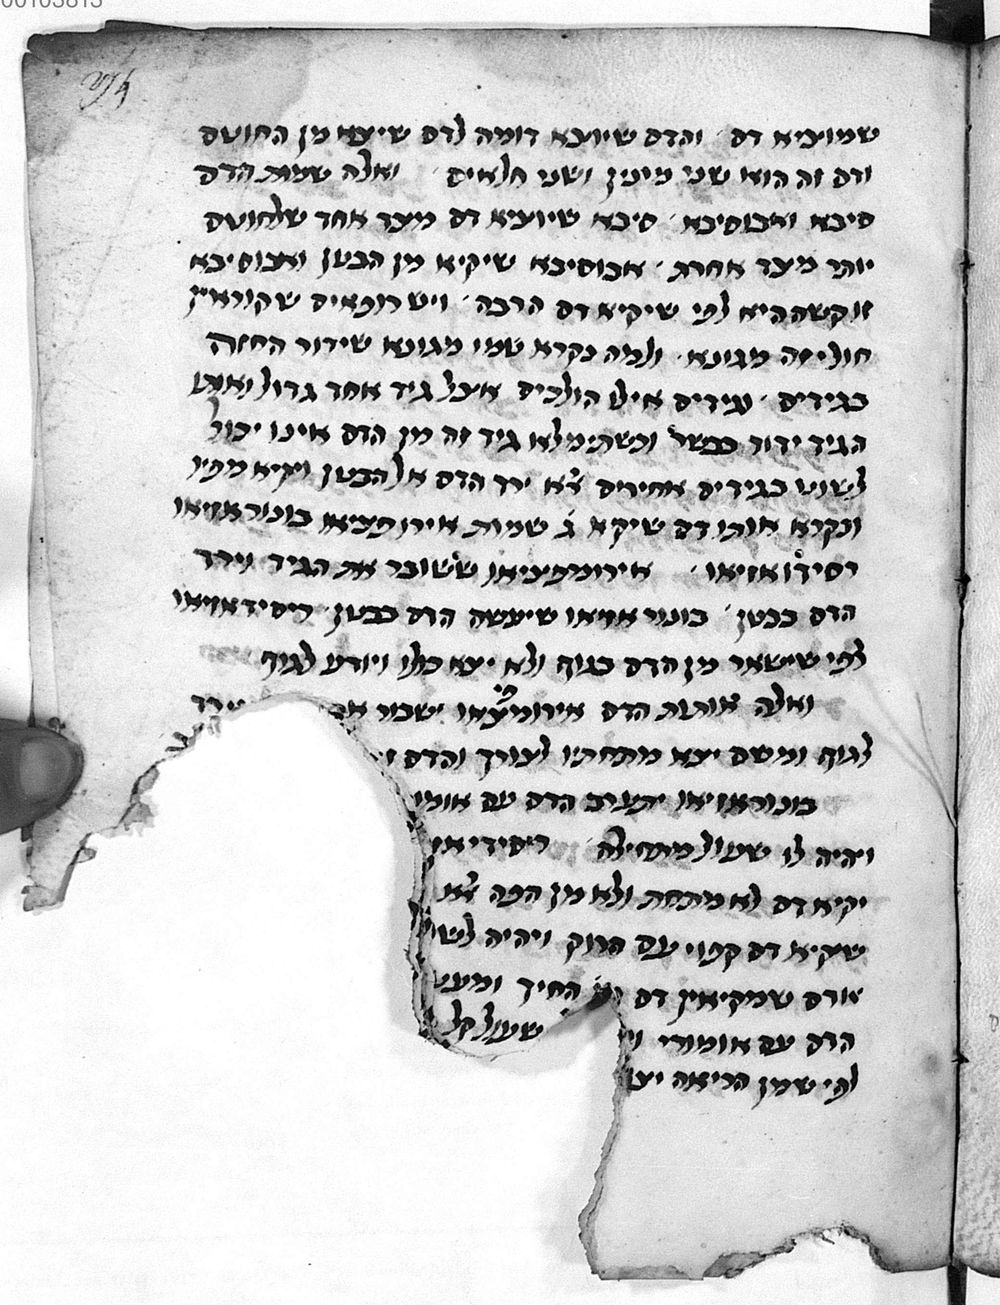 שמוציא דם והדם שיוצא דומה לדם שיצא מן החוטם
ודם זה הוא שני מינין ושני חלאים ואלה שמות הדם
סיבא ואבוסיבא סיבא שיוציא דם מצד אחד שלחוטם
יותר מצד אחרת אבוסיבא שיקיא מן הבטן ואבוסיבא
זו קשה היא לפי שיקיא דם הרבה ויש רופאים שקוראין
חולי זה מגונא ולמה נקרא שמו מגונא שידור החזה
בגידים וגידים אילו הולכים אצל גיד אחד גדול ואותו
הגיד ידור בבשר וכשתימלא גיד זה מן הדם אינו יכול
לשוט בגידים אחירים צ֗א ירד הדם אל הבטן ויקיא מפיו
ונקרא אותו דם שיקיא ג֗ שמות אירופציאו בונוראזיאו
דסידואזיאו אירומפציאו ששובר את הגיד וירד
הדם בבטן בונוראזיאו שיעשה הדם בבטן דיסידאזיאו
לפי שישאר מן הדם בגוף ולא יצא כולו ויודע לגוף
ואלה אותות הדם אירומפציאו ישבור
לגוף ומשם יצא מתחתיו לצורך והדם
בונוראזיאו יתערב הדם עם אומו
ויהיה לו שעול מתחילה דיסידיאז
יקיא דם לא מתחת ולא מן הפה צ֗א
שיקיא דם קפוי עם הרוק ויהיה לשו
אדם שמקיאין דם החיך ומעט
הדם עם אומורי שעול קל
לפי שמן הריאה יצ